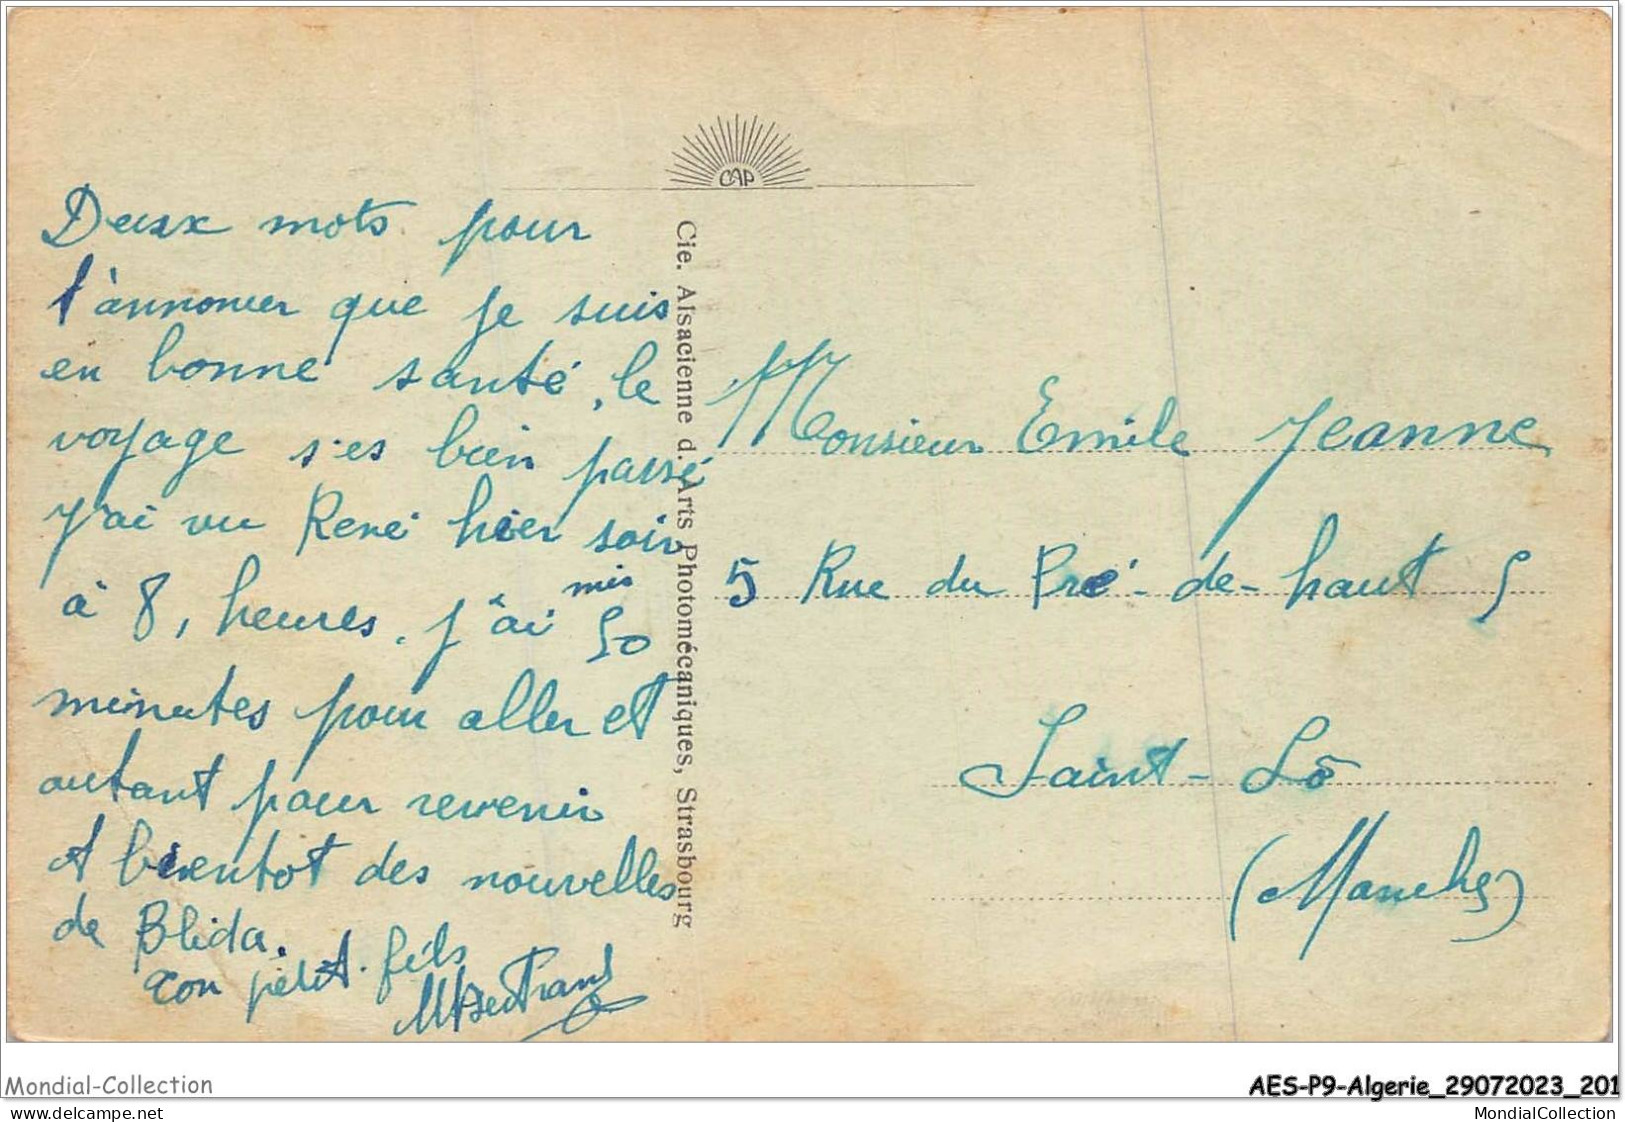 CAP
Deux mots pour
t'annoncer que je suis
en bonne santé, le
voyage s'es bien passé
J'ai vu René hier soir
à 8, heures. J'ai mis 50
minutes pour aller et
autant pour revenir
A bientot des nouvelles
de Blida.
Ton petit. fils
MBertrand
Cie. Alsacienne d. Arts Photomécaniques, Strasbourg
Monsieur Emile Jeanne
5 Rue du Pré-de-haut 5
Saint-Lô
(Manche)
Mondial-Collection
AES-P9-Algerie_29072023_201
www.delcampe.net
MondialCollection